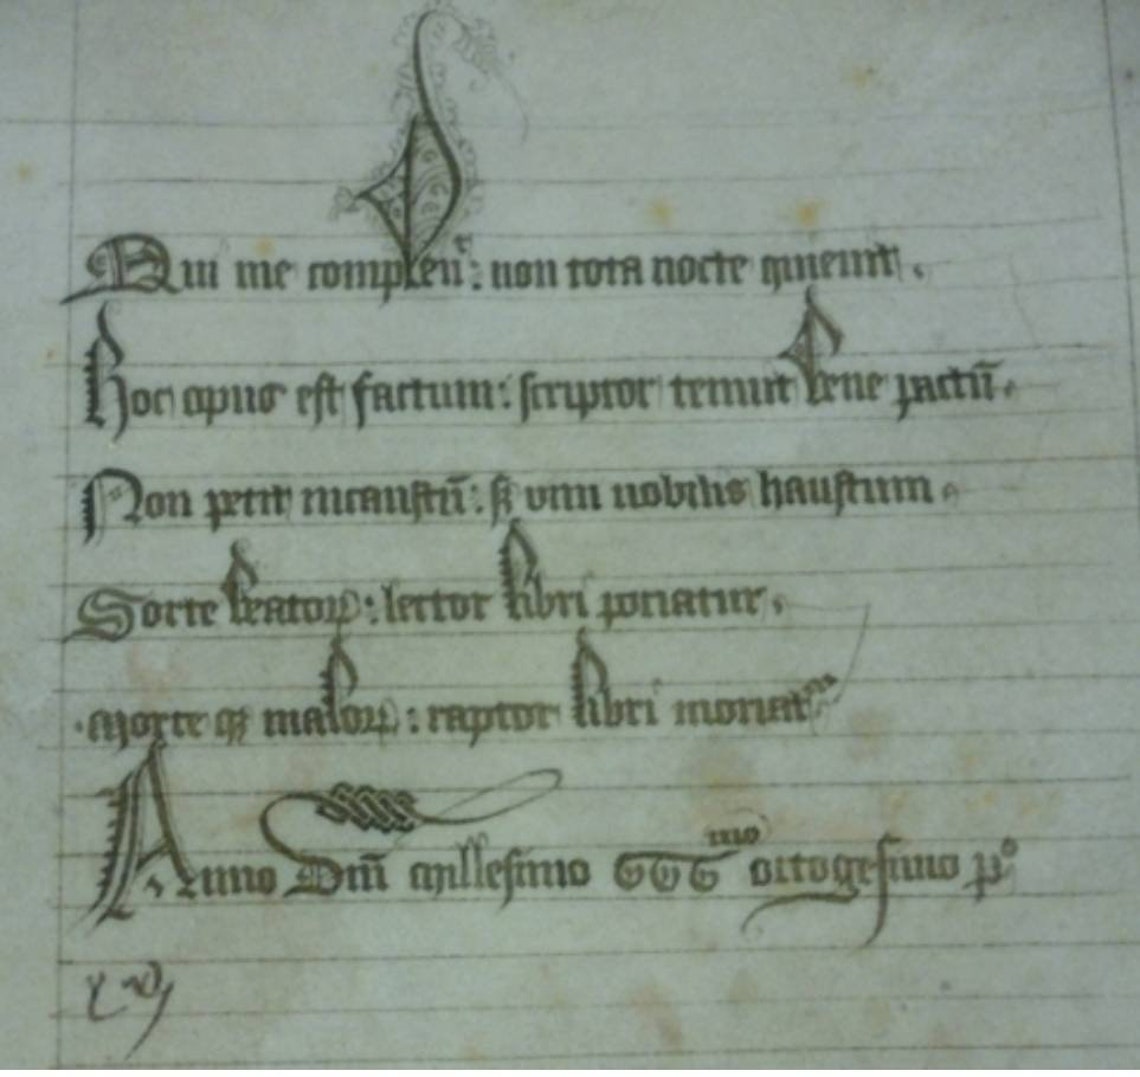 Qui me compleuͭ: non tota nocte quieuit.
Hoc opus est factum: scriptor tenuit bene pactū.
Non petit incaustū: sꝫ vini nobilis haustum.
Sorte beatoꝝ: lector libri ponatur.
Morte qꝫ maloꝝ: raptor libri moriatur
Anno Dn̄i Millesimo CCCᵐᵒ octogesimo pᵒ